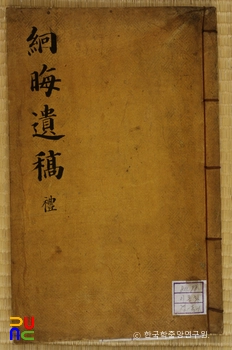 絅晦遺稿
禮
© 한국학중앙연구원